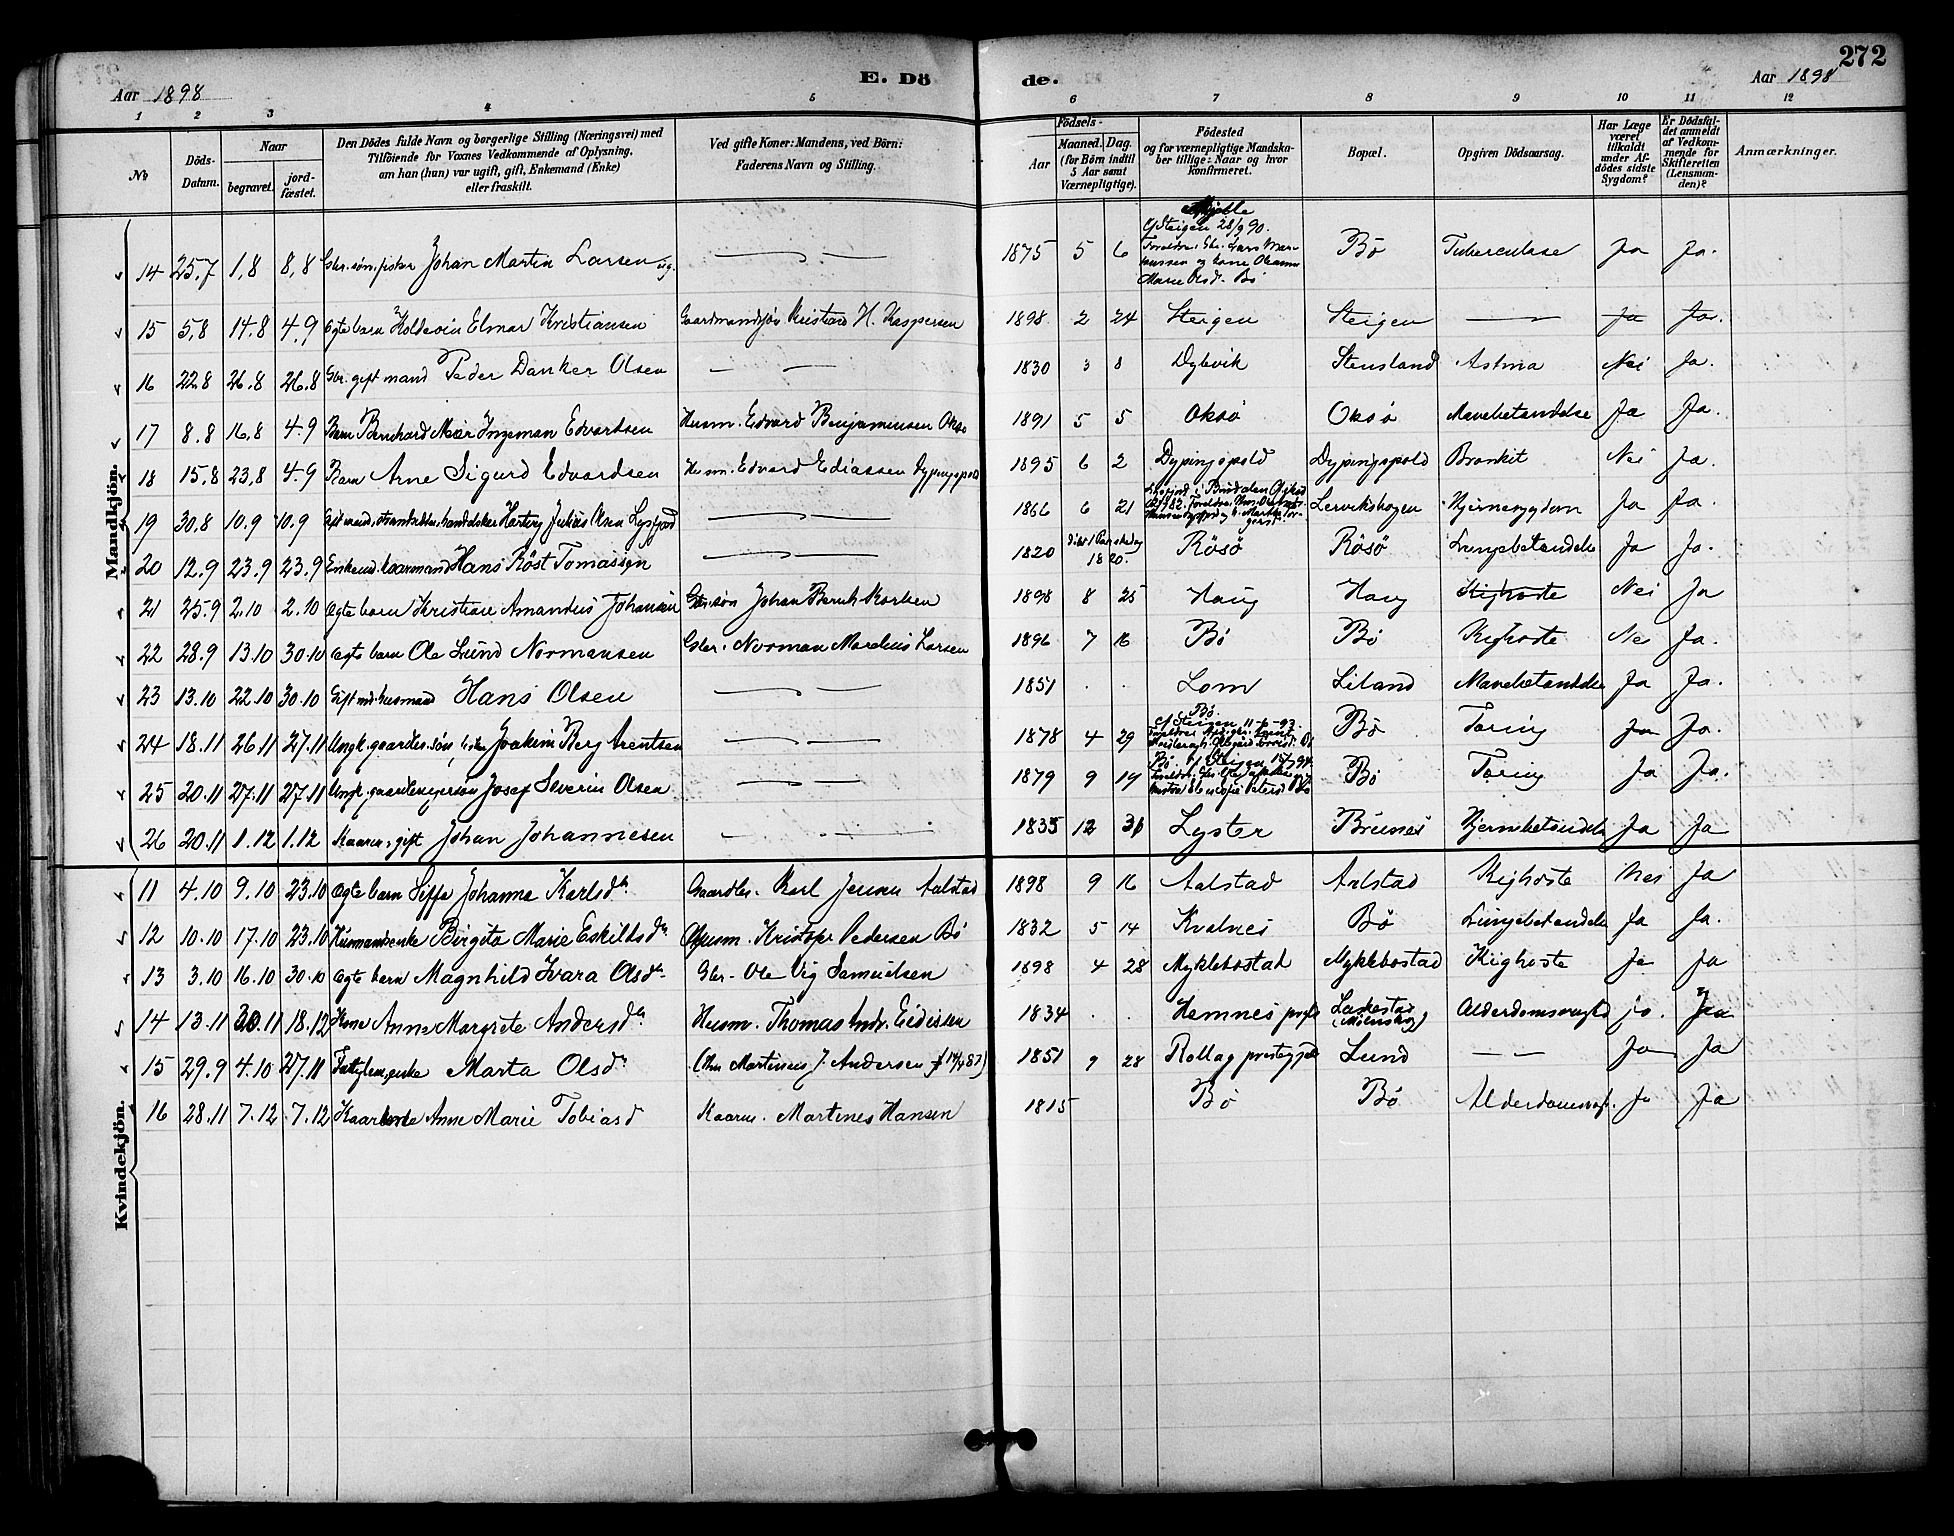 272
Aar 1898
E. Dö
de.
Aar 1898
1 2 3 4 5 6 7 8 9 10 11 12
No
Döds-Datum.
Naar
begravet.
jord-fæstet.
Den Dödes fulde Navn og borgerlige Stilling (Næringsvei) med
Tilföiende for Voxnes Vedkommende af Oplysning,
om han (hun) var ugift, gift, Enkemand (Enke)
eller fraskilt.
Ved gifte Koner: Mandens, ved Börn:
Faderens Navn og Stilling.
Födsels-
Aar
Maaned. Dag.
(for Börn indtil
5 Aar samt
Værnepligtige).
Födested
og for værnepligtige Mandska-
ber tillige: Naar og hvor
konfirmeret.
Bopæl.
Opgiven Dödsaarsag.
Har Læge
været
tilkaldt
under Af-
dödes sidste
Sygdom?
Er Dödsfal-
det anmeldt
af Vedkom-
mende for
Skifteretten
(Lensman-
den)?
Anmærkninger.
Mandkjön.
14 25,7 1,8 8,8 Gbr. søn, fisker Johan Martin Larsen ug. 1875 5 6 c/ Steigen 28/9 90. Forældre: Gbr. Lars Marie Olsd. Bö Bö Tuberculose Ja Ja.
15 5,8 14.8 4.9 Ægte barn Holdevin Elmar Kristiansen Gaardmandsøn Kristian H. Kaspersen 1898 2 24 Steigen Steigen — Ja Ja.
16 22.8 26.8 26.8 Gbr. gift mand Peder Danker Olsen — — 1830 3 8 Dybvik Stensland Astma Nei Ja.
17 8.8 16,8 4.9 Barn Bernhard Meier Ingeman Edvardsen Husm. Edvard Benjaminsen Oksø 1891 5 5 Oksø Oksø Mavebetændelse Ja Ja.
18 15,8 23,8 4.9 Barn Arne Sigurd Edvardsen Husm. Edvard Ediassen Dypingspold 1895 6 2 Dypingspold Dypingspold Bronkit Nei Ja.
19 30,8 10.9 10.9 Gift mand, handelsker Hartvig Julius Olsen Lysfjord 1866 6 21 Lervikshogen Hjernesygdom Ja Ja.
20 12.9 23.9 23.9 Enkem. kaarmand Hans Röst Tomassen 1820 1820. Rösö Rösö Lungebetændelse Ja Ja.
21 25.9 2.10 2.10 Ægte barn Kristian Amandus Johansen Gbr. søn Johan Bernh Karlsen 1898 8 25 Haug Haug Kighoste Nei Ja
22 28.9 13.10 30.10 Ægte barn Ole Lund Normansen Gbr. Norman Marelius Larsen 1896 7 16 Bö Bö Kighoste Nei Ja.
23 13.10 22.10 30.10 Gift ind. husmand Hans Olsen 1851 . . Lom Leland Mavebetændelse Ja Ja.
24 18.11 26.11 27.11 Ungk. gaardbr. søn, fisker Joakim Berg Arentsen 1878 4 29 Bö. c/ Steigen 11-6-93. Bö Tæring Ja Ja.
25 20.11 27.11 27.11 Ungk. gaardbrugersøn Josef Severin Olsen 1879 9 19 Bö c/ Steigen Bö Tæring Ja Ja.
26 20.11 1.12 1.12 Kaarm. gift Johan Johannesen — — 1835 12 31 Lyster Brunes Hjernebetændelse Ja Ja
Kvindekjön.
11 4.10 9.10 23.10 Ægte barn Siffe Johanna Karlsdtr Gaardbr. Karl Jensen Aalstad 1898 9 16 Aalstad Aalstad Kighoste Nei Ja
12 10.10 17.10 23.10 Husmandsenke Birgita Marie Eskildsdtr Husm. Kristofer Pedersen Bö 1832 5 14 Kvalnes Bö Lungebetændelse Ja Ja.
13 3.10 16.10 30.10 Ægte barn Magnhild Ivara Olsdtr Gbr. Ole Vig Samuelsen 1898 4 28 Myklebostad Myklebostad Kighoste Ja Ja
14 13.11 20.11 18.12 Kone Anne Margrete Andersdtr Husm. Thomas Andr. Eidissen 1834 . . Hemnes prgld Laskestad Alderdomssvaghd ja. Ja
15 29.9 4.10 27.11 Fattiglem, enke Marta Olsdtr (Hm Martinus J. Andersen † 14/4 87) 1851 9 28 Rollag prestegjeld Lund — — Ja Ja
16 28.11 7.12 7.12 Kaarenke Anne Marie Tobiasd Kaarm. Martines Hansen 1815 Bö Bö Alderdomssvagh. Ja Ja